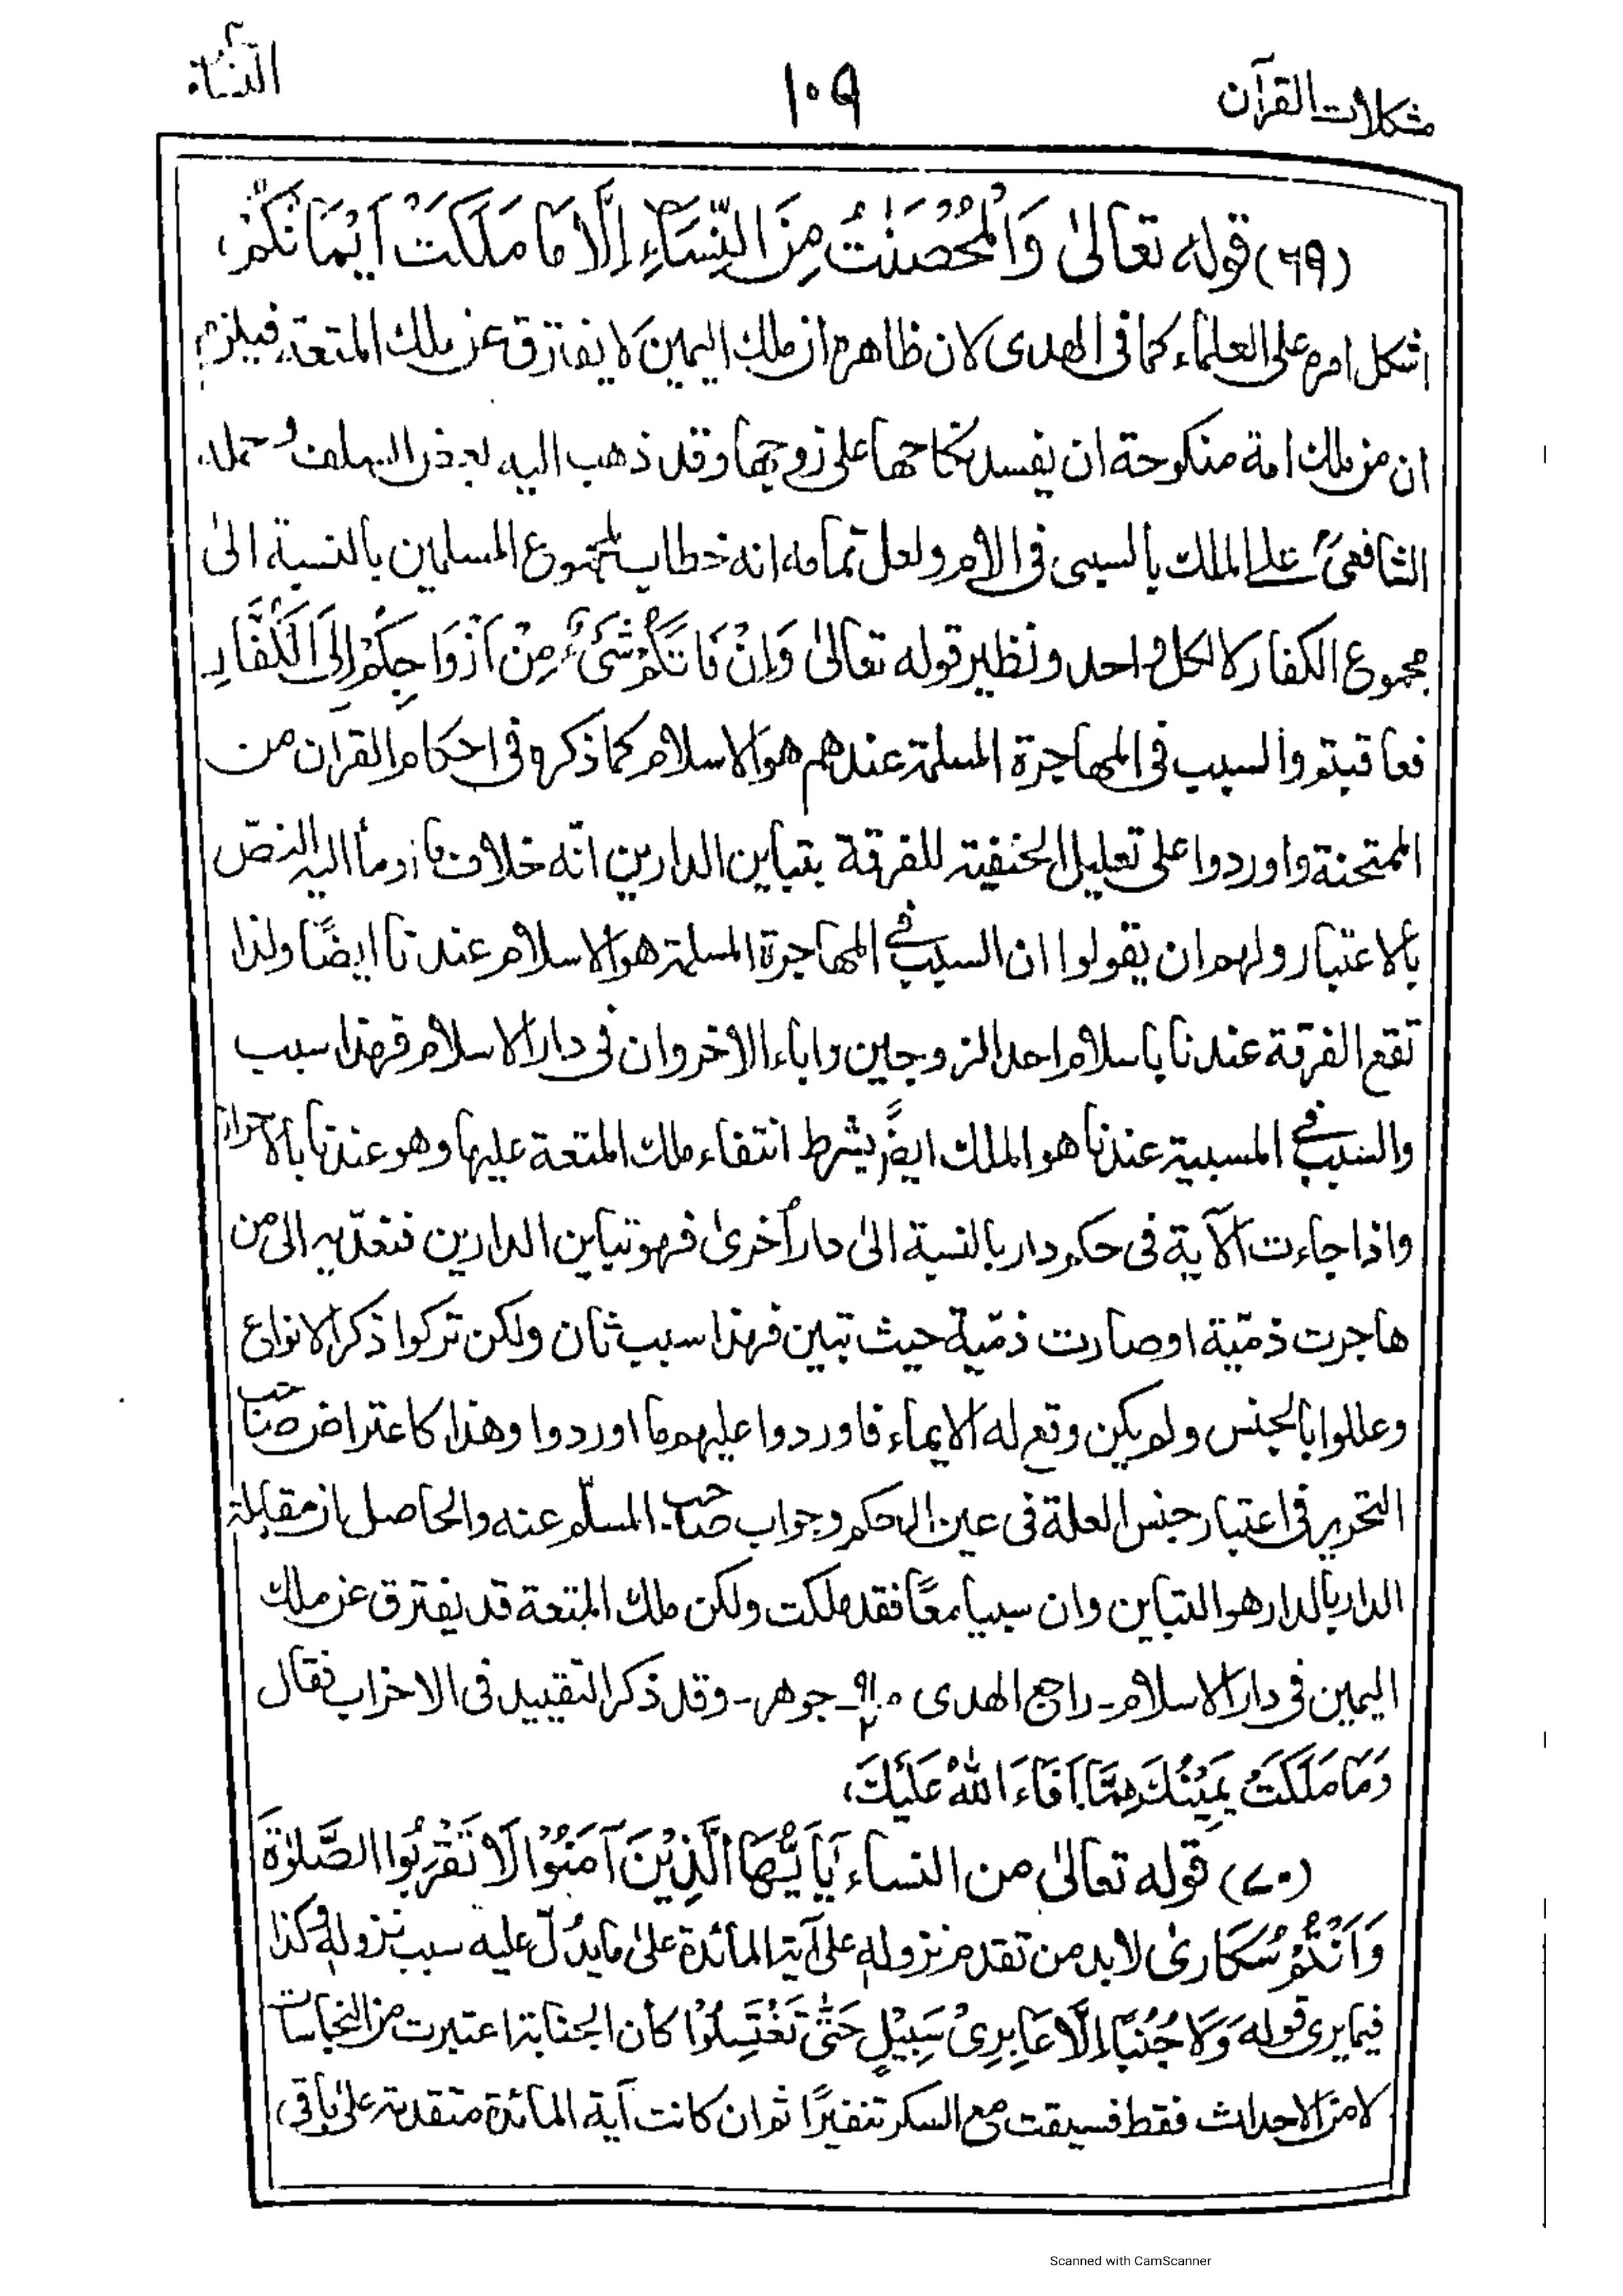 مشكلات القرآن
١٠٩
النساء
(٦٩) قوله تعالىٰ وَالْمُحْصَنٰتُ مِنَ النِّسَآءِ إِلَّا مَا مَلَكَتْ اَيْمَانُكُمْ،
اشكل امره على العلماء كما فى الهدى لان ظاهره ان ملك اليمين لا يفترق عن ملك المتعة فيلزم
ان من ملك امة منكوحة ان يفسد نكاحها على زوجها وقد ذهب اليه بعض السلف وحمله
الشافعىؒ على الملك بالسبى فى الام ولعل تمامه انه خطاب لمجموع المسلمين بالنسبة الىٰ
مجموع الكفار لا لكل واحد ونظيره قوله تعالىٰ وَاِنْ فَاتَكُمْ شَىْءٌ مِنْ اَزْوَاجِكُمْ اِلَى الْكُفَّارِ
فعاقبتم والسبب فى المهاجرة المسلمة عندهم هو الاسلام كما ذكره فى احكام القران من
الممتحنة واوردوا على تعليل الحنفية للفرقة بتباين الدارين انّه خلاف ما اومأ اليه النصّ
بالاعتبار ولهم ان يقولوا ان السبب فى المهاجرة المسلمة هو الاسلام عندنا ايضًا ولذا
تقع الفرقة عندنا باسلام احد الزوجين واباء الاخر وان فى دار الاسلام فهذا سبب
والسبب فى المسبية عندنا هو الملك ايضً بشرط انتفاء ملك المتعة عليها وهو عندنا بالاحراز
واذا جاءت الآية فى حكم دار بالنسبة الىٰ دار اُخرىٰ فهو تباين الدارين فنعدّيه الى من
هاجرت ذمّية او صارت ذمّية حيث تبين فهذا سبب ثان ولكن تركوا ذكر الانواع
وعللوا بالجنس ولم يكن وقع له الايماء فاوردوا عليهم ما اوردوا وهذا كاعتراض صاحب
التحرير فى اعتبار جنس العلة فى عين الحكم وجواب صاحب المسلّم عنه والحاصل ان مقابلة
الدار بالدار هو التباين وان سبيا معًا فقد ملكت ولكن ملك المتعة قد يفترق عن ملك
اليمين فى دار الاسلام۔ راجع الهدى جوهر۔ وقد ذكر التقييد فى الاحزاب فقال
وَمَا مَلَكَتْ يَمِيْنُكَ مِمَّا اَفَاءَ اللّٰهُ عَلَيْكَ،
(٧٠) قوله تعالىٰ من النساء يٰاَيُّهَا الَّذِيْنَ آمَنُوْا لَا تَقْرَبُوا الصَّلٰوةَ
وَاَنْتُمْ سُكَارىٰ لابد من تقدم نزوله على آية المائدة علىٰ ما يدُلّ عليه سبب نزوله وكذا
فيما يرى قوله وَلَا جُنُبًا اِلَّا عَابِرِىْ سَبِيْلٍ حَتّٰى تَغْتَسِلُوْا كأن الجنابة اعتبرت من النجاسات
لا من الاحداث فقط فسيقت مع السكر تنفيرًا ثم ان كانت آية المائدة متقدمة على باقى
Scanned with CamScanner